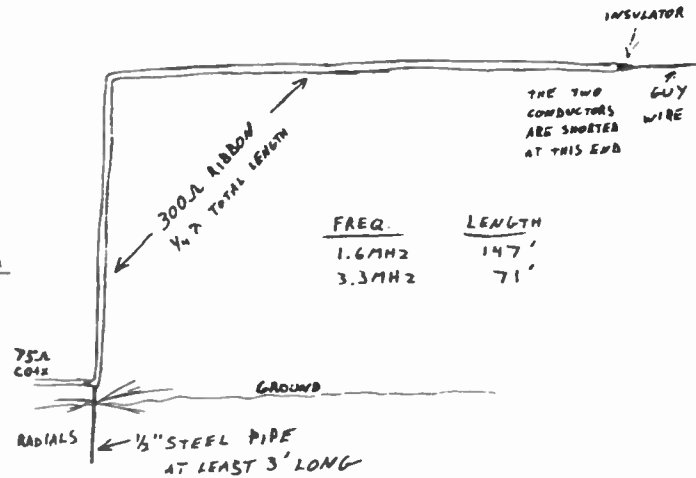 INSULATOR
THE TWO
CONDUCTORS
ARE SHORTED
AT THIS END
GUY
WIRE
300Ω RIBBON
1/4 λ TOTAL LENGTH
FREQ. LENGTH
1.6MHz 147'
3.3MHz 71'
75Ω
COAX
GROUND
RADIALS
1/2" STEEL PIPE
AT LEAST 3' LONG